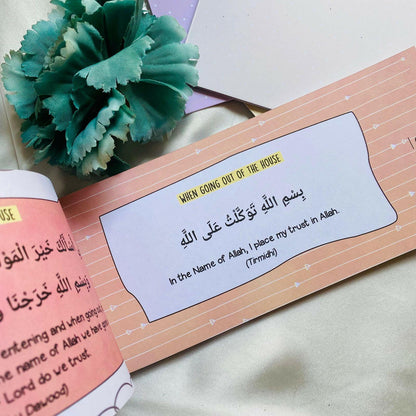 WHEN GOING OUT OF THE HOUSE
بِسْمِ اللَّهِ تَوَكَّلْتُ عَلَى اللَّهِ
In the Name of Allah, I place my trust in Allah.
(Tirmidhi)
USE
خَيْرَ
بِسْمِ اللَّهِ خَرَجْنَا
entering and when going
the name of Allah we have
Lord do we trust.
Dawood)